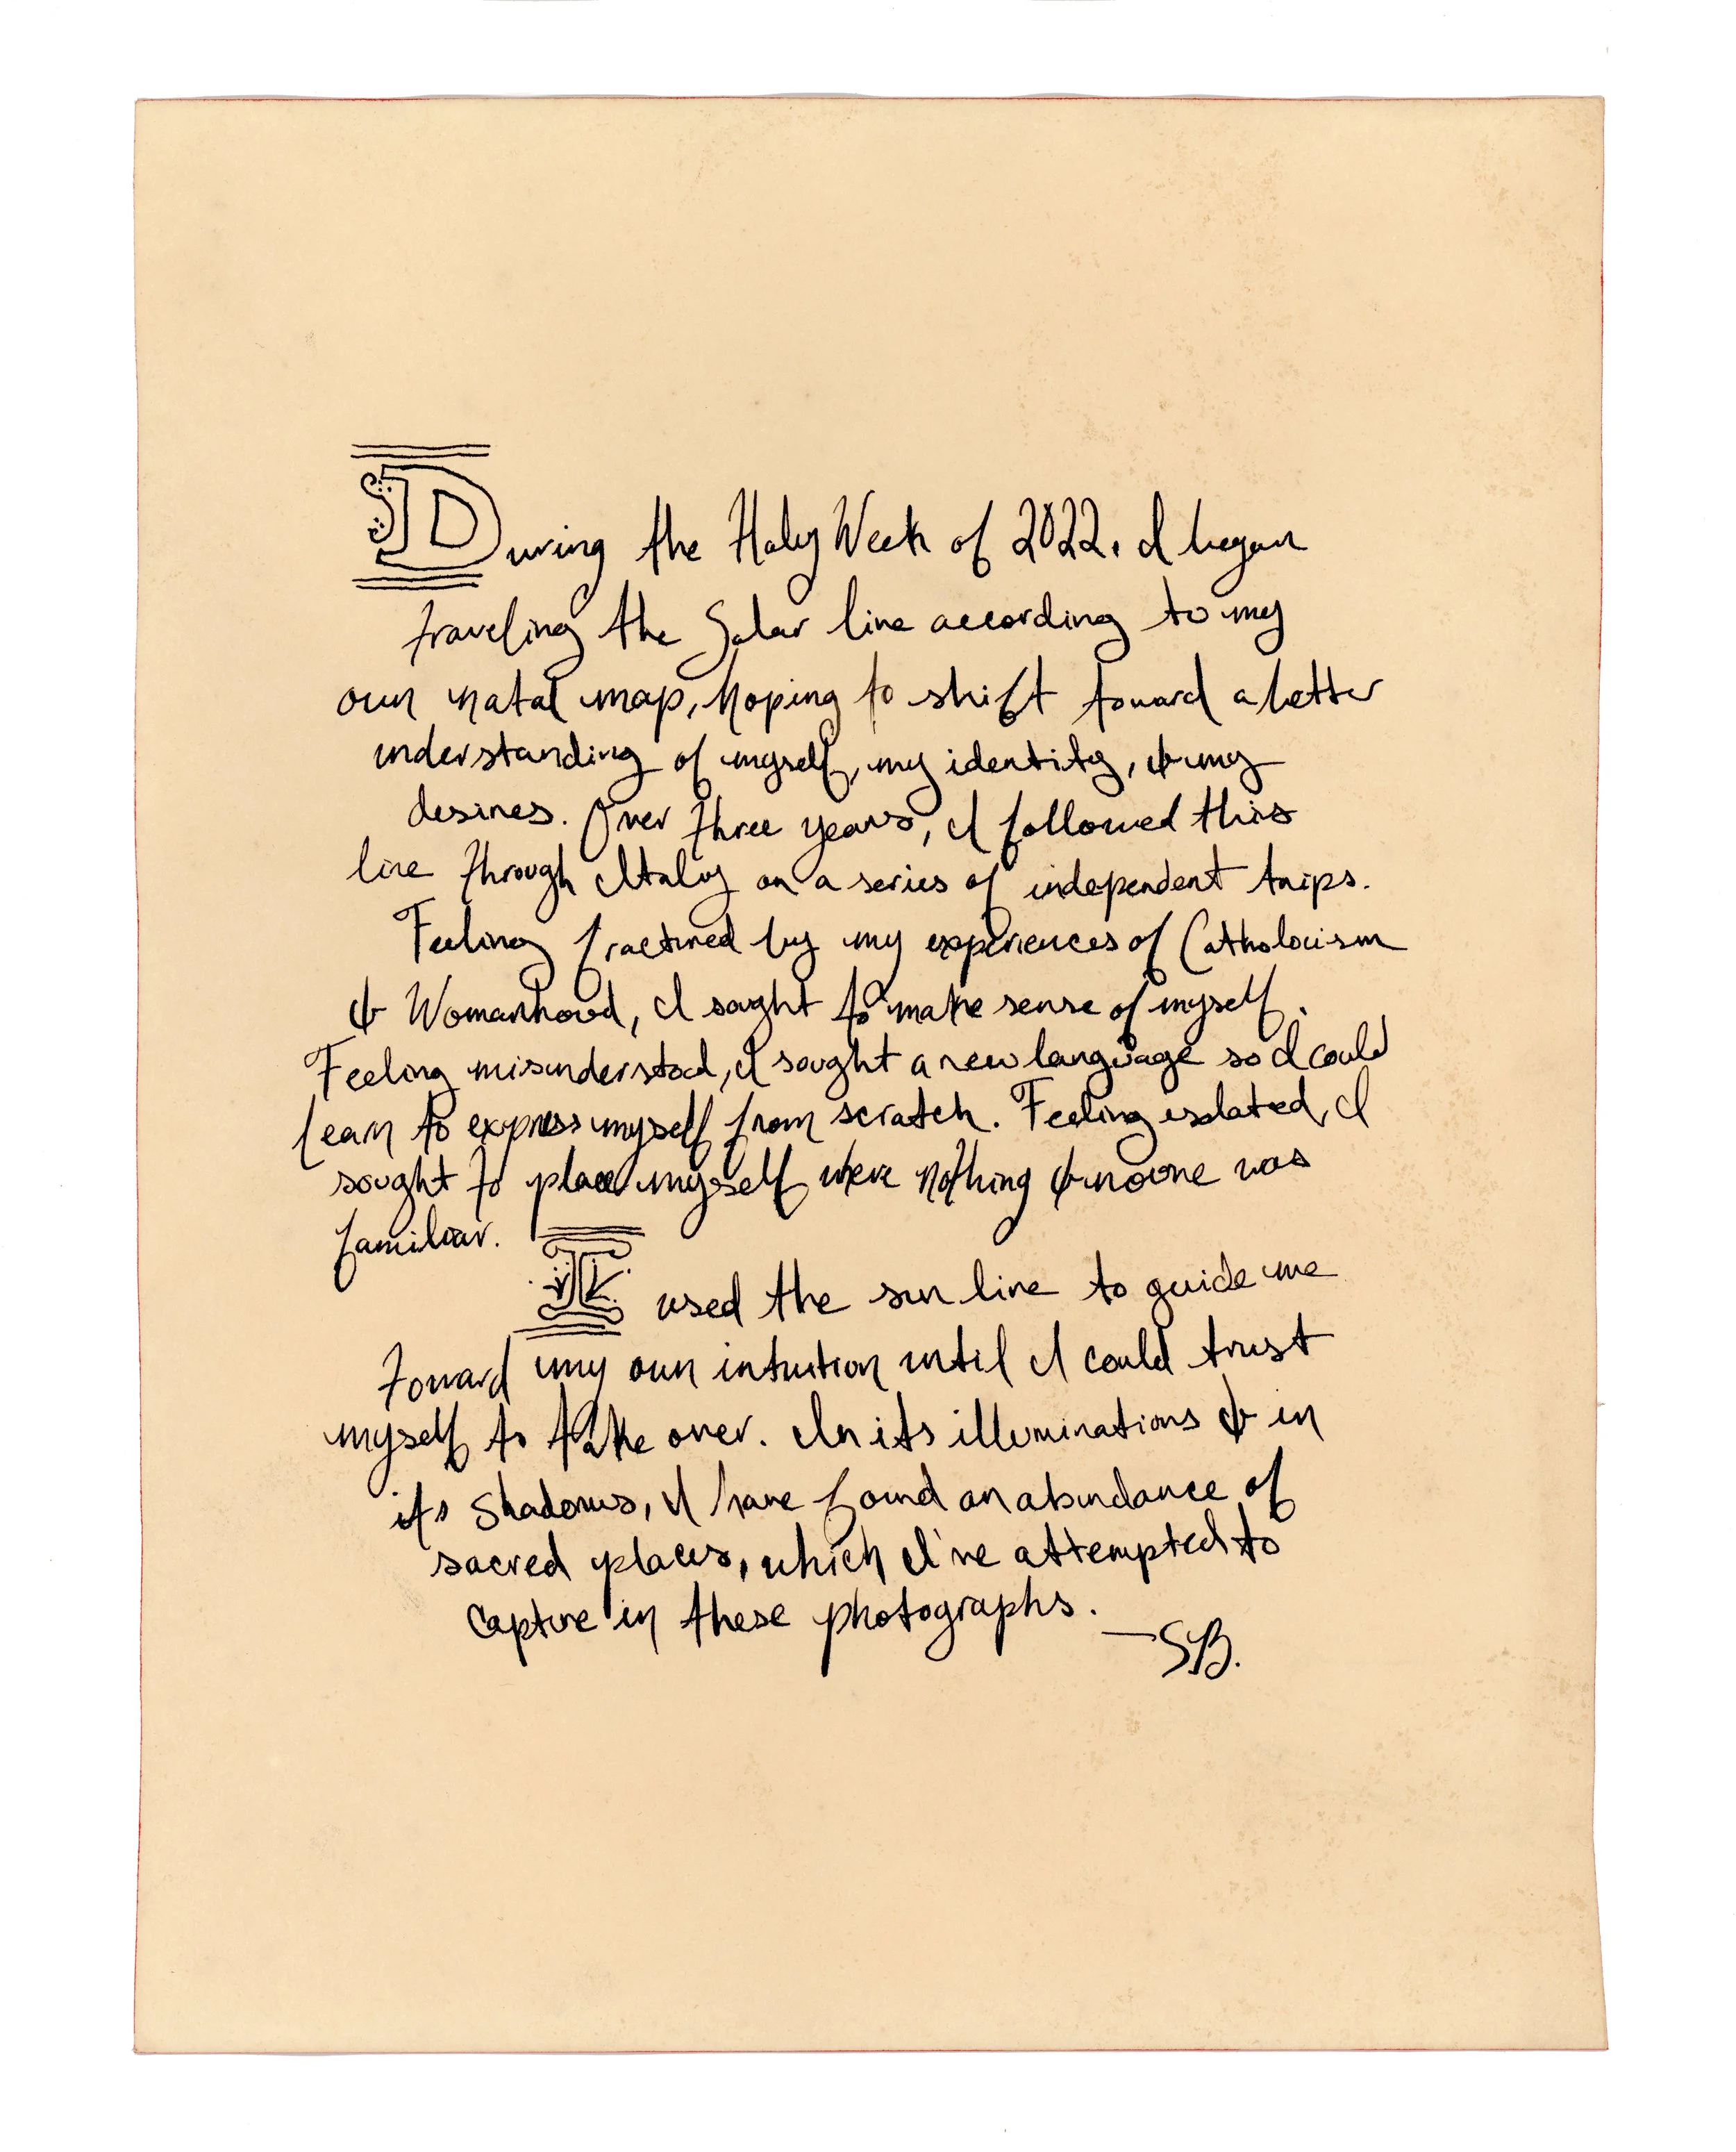 During the Holy Week of 2022, I began
traveling the Solar line according to my
own natal map, hoping to shift toward a better
understanding of myself, my identity, & my
desires. Over three years, I followed this
line through Italy on a series of independent trips.
Feeling fractured by my experiences of Catholocism
& Womanhood, I soght to make sense of myself.
Feeling misunderstood, I sought a new language so I could
learn to express myself from scratch. Feeling isolated, I
sought to place myself where nothing & no one was
familiar.
I used the sun line to guide me
toward my own intuition until I could trust
myself to take over. In its illuminations & in
its shadows, I have found an abundance of
sacred places, which I've attempted to
capture in these photographs.
—SB.